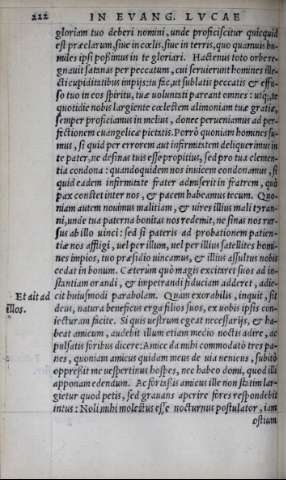 222 IN EVANG. LVCAE
gloriam tuo deberi nomini, unde proficiscitur quicquid
est præclarum, siue in cœlis, siue in terris, quo quamuis hu-
miles ipsi possimus in te gloriari. Hactenus toto orbe re-
gnauit satanas per peccatum, cui seruierunt homines ille-
cti cupiditatibus impijs: tu fac, ut sublatis peccatis & effu-
so tuo in eos spiritu, tuæ voluntati pareant omnes: utq́; te
quotidie nobis largiente cœlestem alimoniam tuæ gratiæ,
semper proficiamus in melius, donec perueniamus ad per-
fectionem euangelicæ pietatis. Porrò quoniam homines su-
mus, si quid per errorem aut infirmitatem deliquerimus in
te pater, ne desinas tuis esse propitius, sed pro tua clemen-
tia condona: quandoquidem nos inuicem condonamus, si
quid eadem infirmitate frater admiserit in fratrem, quò
pax constet inter nos, & pacem habeamus tecum. Quo-
niam autem nouimus malitiam, & uires illius mali tyran-
ni, unde tua paterna bonitas nos redemit, ne sinas nos rur-
sus ab illo uinci: sed si pateris ad probationem patien-
tiæ nos affligi, uel per illum, uel per illius satellites homi-
nes impios, tuo præsidio uincamus, & illius assultus nobis
cedat in bonum. Cæterùm quò magis excitaret suos ad in-
stantiam orandi, & impetrandi fiduciam adderet, adie-
Et ait ad cit huiusmodi parabolam. Quàm exorabilis, inquit, sit
illos. deus, natura beneficus erga filios suos, ex uobis ipsis con-
iecturam facite. Si quis uestrum egeat necessarijs, & ha-
beat amicum, audebit illum etiam mediò noctis adire, ac
pulsatis foribus dicere: Amice da mihi commodatò tres pa-
nes, quoniam amicus quidam meus de uia ueniens, subitò
oppressit me uespertinus hospes, nec habeo domi, quod illi
apponam edendum. Ac fortassis amicus ille non statim lar-
gietur quod petis, sed grauans aperire fores respondebit
intus: Noli mihi molestus esse nocturnus postulator, iam
ostium